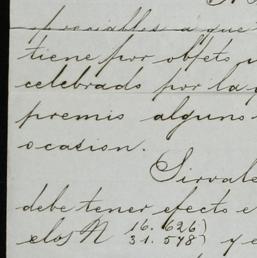 posibles a que
tiene por objeto
celebrado por la
premio alguno
ocasion.
Sirvale
debe tener efecto e
elos N 16.626)
31.548) y e